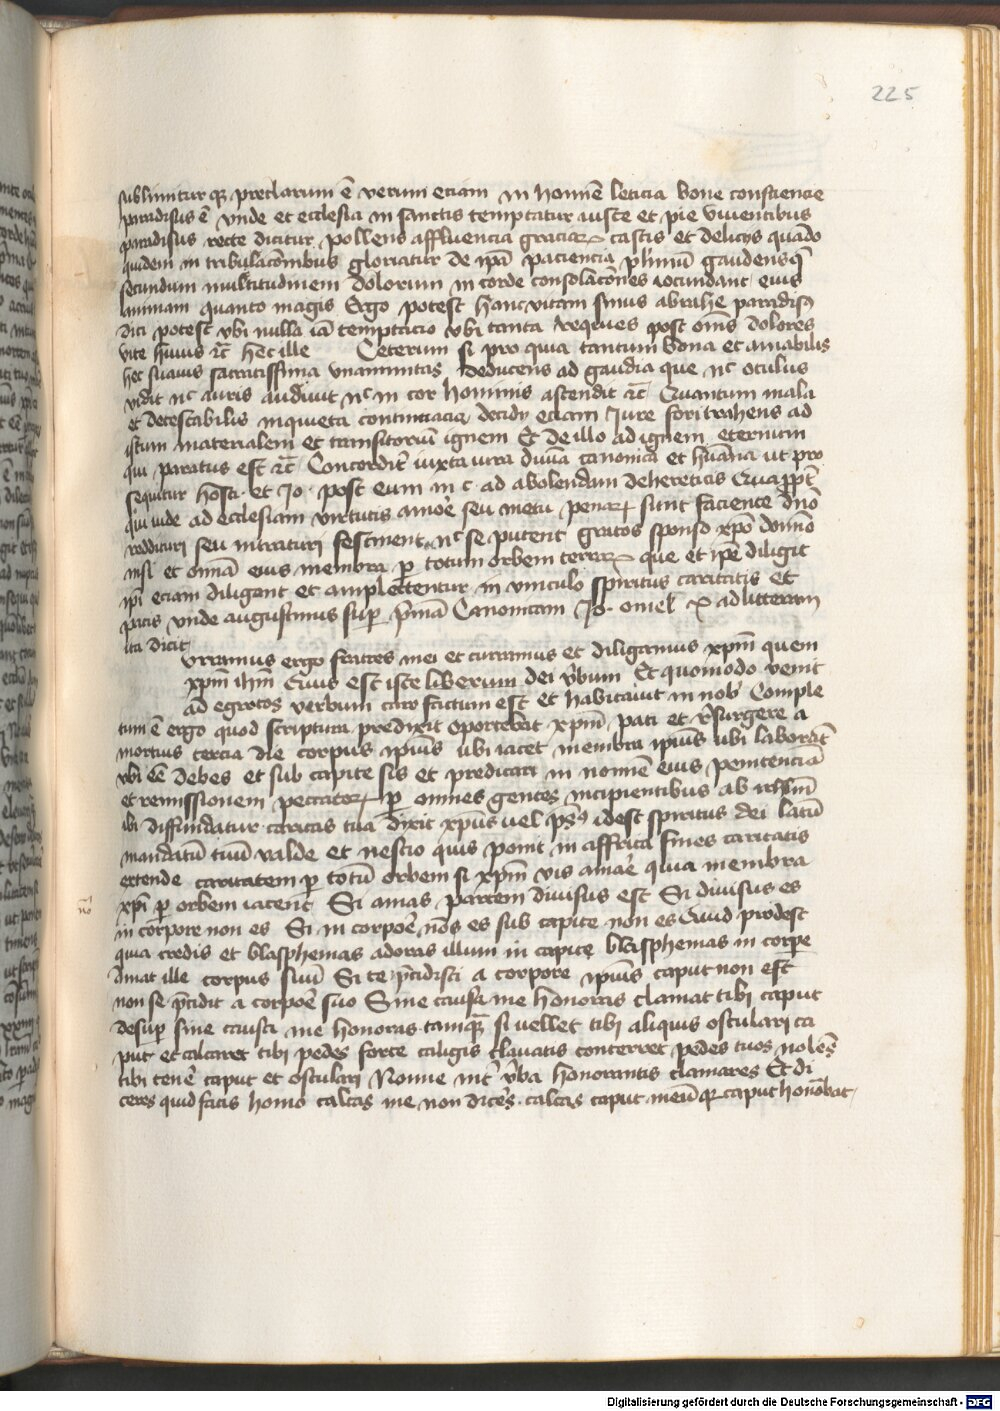 225
sublimitur qz preclarum ē verum eciam in homīe leticia bone consciencie
paradisus ē vnde et ecclesia in sanctis temptatur iuste et pie viuentibus
paradisus recte dicitur pollens affluencia graciarꝝ castis et delicijs quādo
quidem in tribulacōnibus gloriatur de ip̄a paciencia plimū gaudensqꝫ
secundum multitudinem dolorum in corde consolacōnes iocundant eius
animam quanto magis Ergo potest hanc vitam sinus abrahe paradisꝰ
dici potest vbi nulla iā temptacio vbi tanta requies post om̄s dolores
vite huius ꝛc̄ hec ille Ceterum si pro qua tantum bona et amabilis
hec suauis sacratissima vnanimitas deducens ad gaudia que nc̄ oculus
vidit nc̄ auris audiuit nc̄ in cor hominis ascendit ꝛc̄ Quantum mala
et detestabilis inquieta eciam Jure fori trahens ad
istum materialem et transitoriū ignem Et de illo ad ignem eternum
qui paratus est ꝛc̄ Concordit᷑ iuxta iura diuīa canonica et huāna ut pro
sequitur hosti et Jo post eum in c ad abolendam de hereticis Quap̄pt᷑
qui ad ecclesiam virtutis amōe seu metu penarꝝ sunt faciente dn̄o
reddituri seu intraturi festinent nc̄ se putent gratos sponso xp̄o domīo
nisi et omīa eius membra ꝑ totum orbem terrarꝝ que et ip̄e diligit
ip̄i eciam diligant et amplectentur in vinculo spiritus caritatis et
pacis vnde augustinus sup̲ p̄mā Canonicam Jo omel x ad litteram
ita dicit
vrramus ergo fratres mei et curramus et diligamus xp̄m quem
xp̄m ih̄m Quis est iste liberum dei v̄bum Et quomodo venit
ad egrotos verbum caro factum est et habitauit in nob̄ Comple
tum ē ergo quod scriptura predixit oportebat xp̄m pati et r̄surgere a
mortuis tercia die corpus ip̄ius ubi iacet membra ip̄ius ubi laborāt
vbi eē debes et sub capite sis et predicari in nomīe eius penitenciā
et remissionem peccatorꝝ ꝑ omnes gentes incipientibus ab irhl̄m
ibi diffundatur caritas tua dixit xp̄us uel ps̄ꝰ idest spiritus dei latū
mandatū tuū valde et nescio quis ponit in affrica fines caritatis
extende caritatem ꝑ totū orbem si xp̄m vis amar̄e quia membra
xp̄i ꝑ orbem iacent Si amas partem diuisus est Si diuisus es
in corpore non es Si in corpoe nōs es sub capite non es Quid prodest
quia credis et blasphemas adoras illum in capite blasphemas in corpe
Amat ille corpus suū Si te p̄cidisti a corpore ip̄ius caput non est
non se p̄cidit a corpoē suo Sine causa me honoras clamat tibi caput
desup̲ sine causa me honoras tamq̄ si vellet tibi aliquis osculari ca
put et calcaret tibi pedes forte caligis clauatis contereret pedes tuos nolēs
tibi tenēr caput et osculari Nonne int̄ v̄ba honorantis clamares Et di
ceres quid facis homo calcas me non dicēs calcas caput meū qz caput honōbat